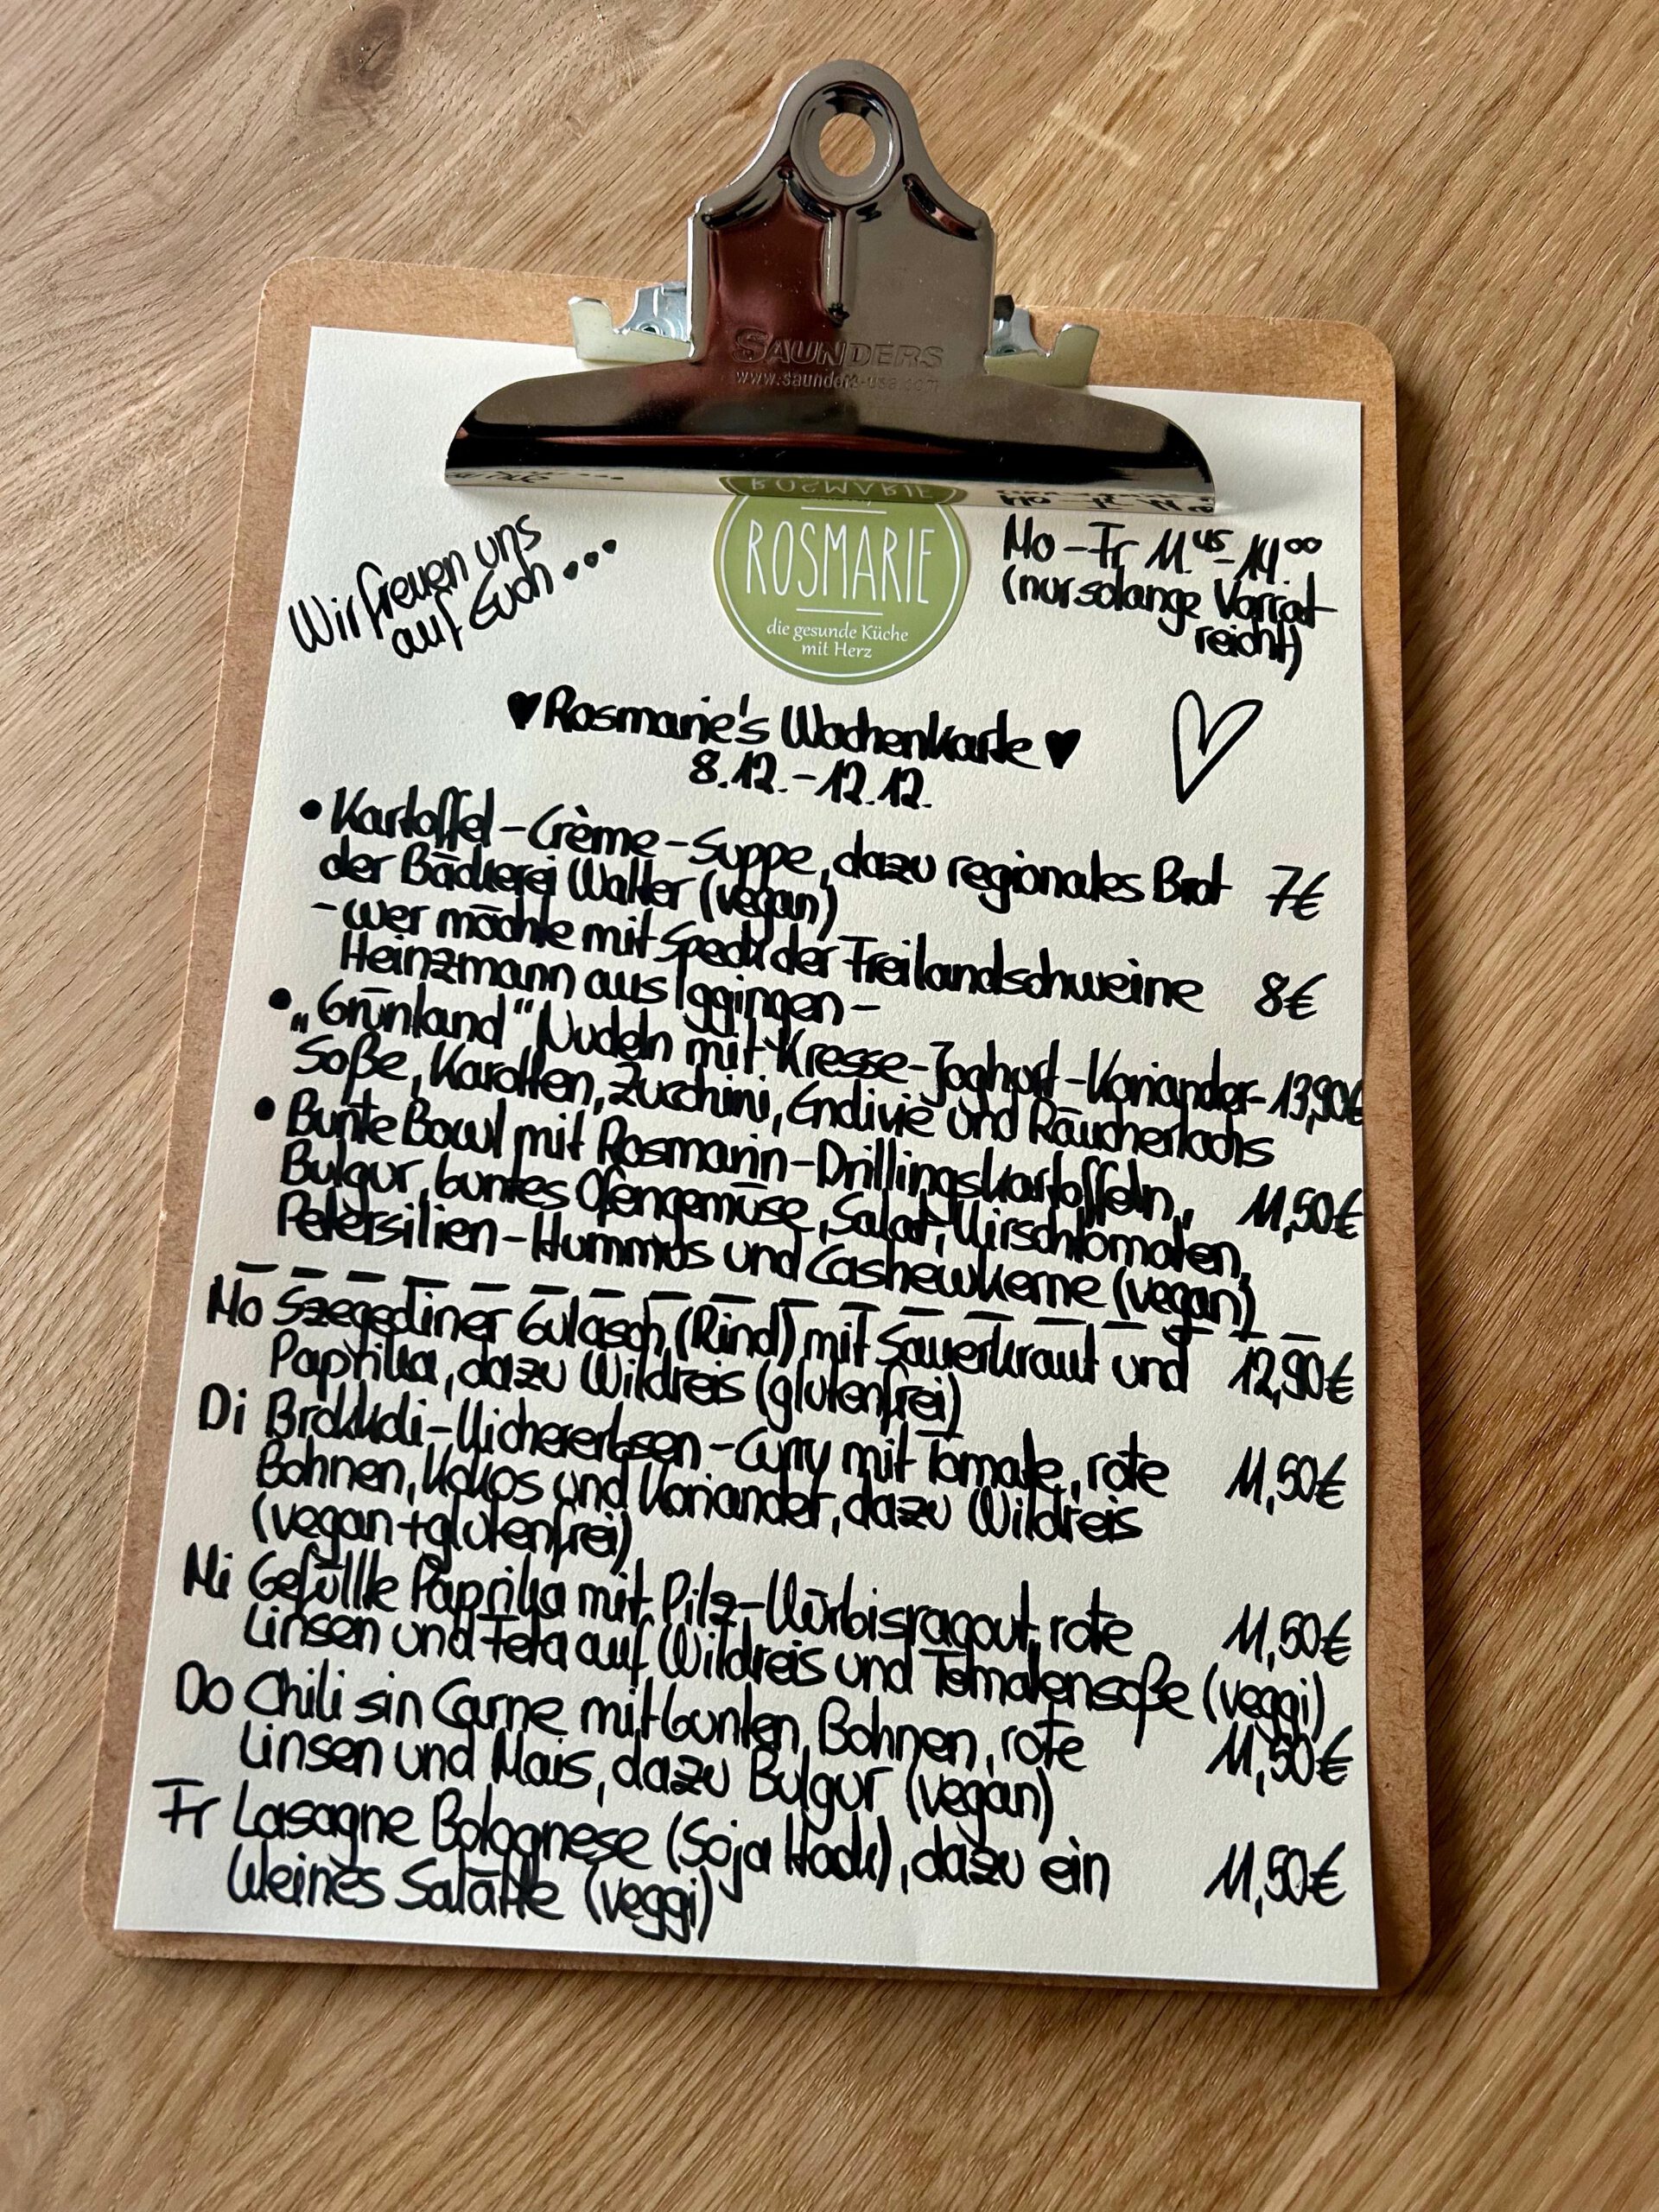 SAUNDERS
www.saunders-usa.com
Wir freuen uns
auf Euch...
ROSMARIE
die gesunde Küche
mit Herz
Mo-Fr 11.45-14.00
(nur solange Vorrat
reicht)
♥Rosmarie's Wochenkarte♥
8.12.-12.12.
• Kartoffel-Crème-Suppe, dazu regionales Brot 7€
der Bäckerei Walter (vegan)
- wer möchte mit Speck der Freilandschweine 8€
Heinzmann aus Iggingen -
• „Grünland" Nudeln mit Kresse-Joghurt-Koriander- 13,90€
Soße, Karotten, Zucchini, Endivie und Räucherlachs
• Bunte Bowl mit Rosmarin-Drillingskartoffeln, 11,50€
Bulgur, buntes Ofengemüse, Salat, Kirschtomaten,
Petersilien-Hummus und Cashewkerne (vegan)
Mo Szegediner Gulasch (Rind) mit Sauerkraut und 12,90€
Paprika, dazu Wildreis (glutenfrei)
Di Brokkoli-Kichererbsen-Curry mit Tomate, rote 11,50€
Bohnen, Kokos und Koriander, dazu Wildreis
(vegan+glutenfrei)
Mi Gefüllte Paprika mit Pilz-Kürbisragout, rote 11,50€
Linsen und Feta auf Wildreis und Tomatensoße (veggi)
Do Chili sin Carne mit bunten Bohnen, rote 11,50€
Linsen und Mais, dazu Bulgur (vegan)
Fr Lasagne Bolognese (Soja Hack), dazu ein 11,50€
kleines Salätle (veggi)